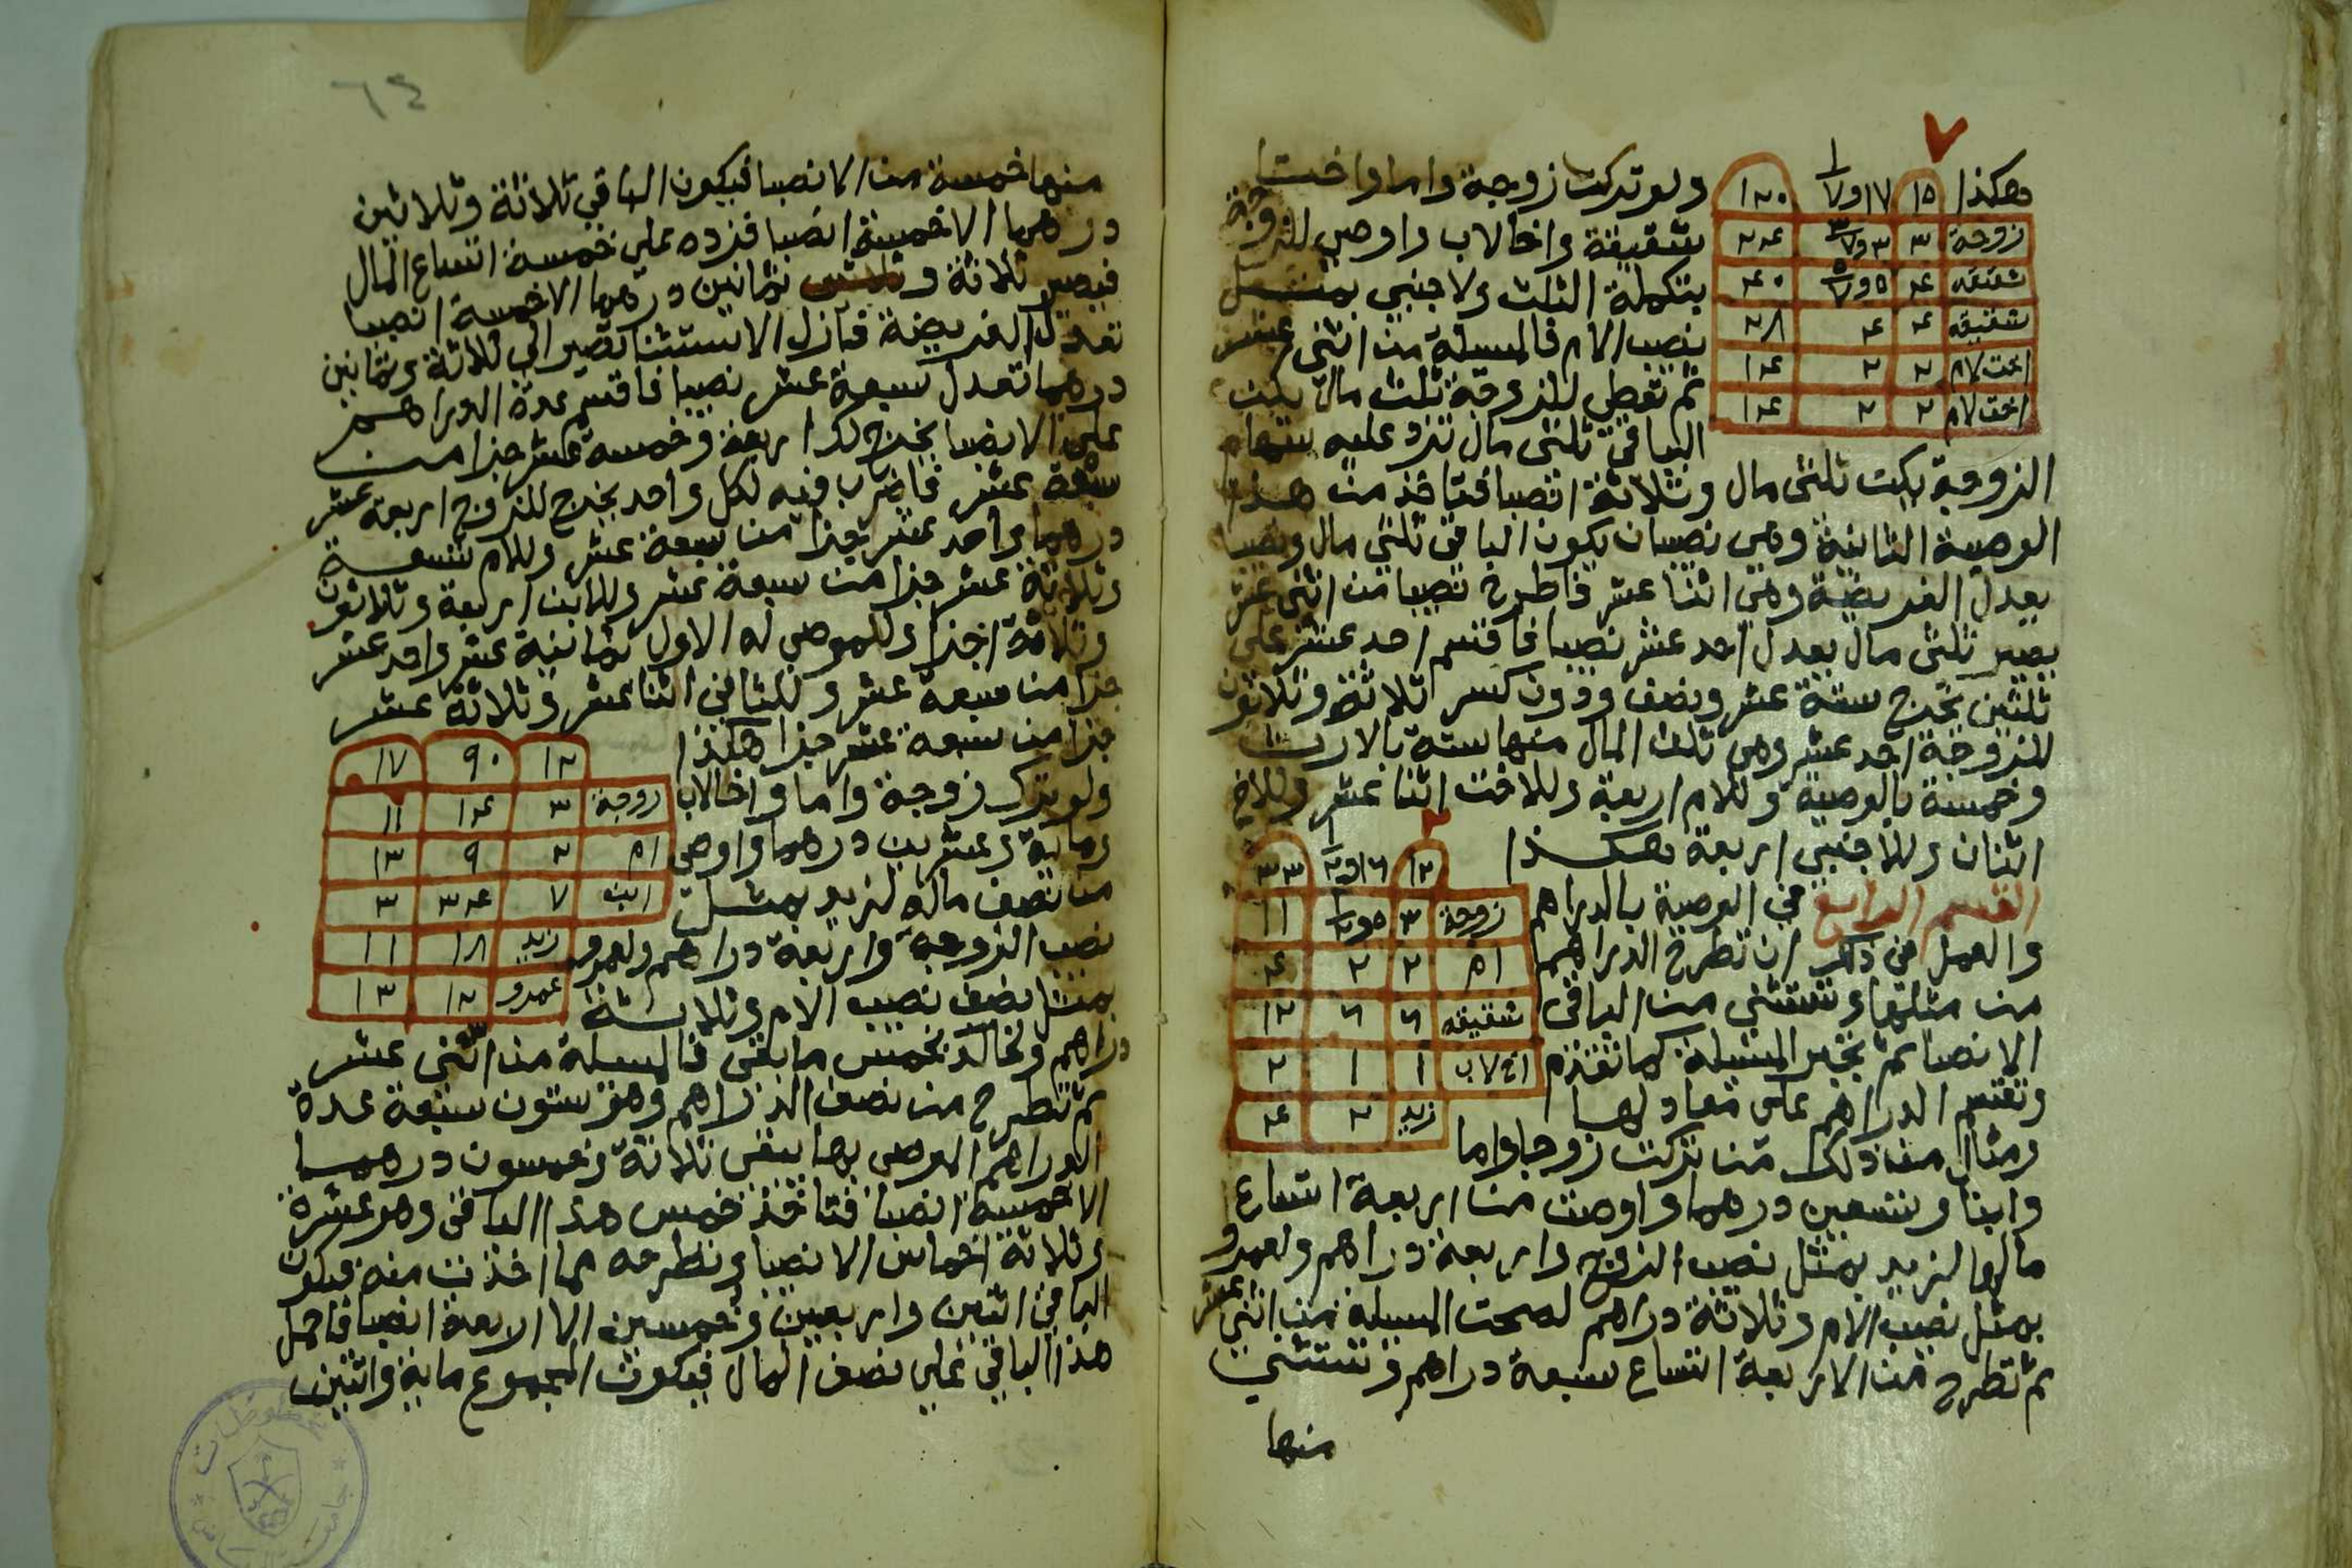 هكذا
١٥ ١٧ و١/٧ ١٢٠
زوجة ٣ ٣ و٣/٧ ٢٤
شقيقه ٤ ٥ و٥/٧ ٤٠
شقيقه ٤ ٤ ٢٨
اخت لام ٢ ٢ ١٤
اخت لام ٢ ٢ ١٤
ولو تركت زوجة واما واختا
شقيقة واخا لاب واوصي للزوجة
بتكملة الثلث ولاجنبي بمثل
نصيب الام فالمسلة من اثنى عشر
ثم تعطي للزوجة ثلث مال يبقى
الباقي ثلثى مال تزد عليه سهام
الزوجة يكن ثلثى مال وثلاثة انصبا فتاخذ من هذا
الوصية الثانية وهي نصيبان يكون الباقى ثلثي مال ونصيبا
يعدل الفريضة وهي اثنا عشر فاطرح نصيبا من اثنى عشر
يصير ثلثى مال يعدل احد عشر نصيبا فاقسم احد عشر على
ثلثين يخرج ستة عشر ونصف ودون كسر ثلاثة وثلاثون
للزوجة احد عشر وهى ثلث المال منها ستة بالارث
وخمسة بالوصية وللام اربعة وللاخت اثنا عشر وللاخ
اثنان وللاجنبي اربعة هكذا
١٢ ١٦ و١/٢ ٣٣
زوجة ٣ ٥ و١/٢ ١١
ام ٢ ٢ ٤
شقيقه ٦ ٦ ١٢
اخ لاب ١ ١ ٢
زيد ٢ ٤
القسم الرابع في الوصية بالدراهم
والعمل في ذلك ان تطرح الدراهم
من مثلها وتستثني من الباقى
الانصبا ثم تجبر المسلة كما تقدم
وتقسم الدراهم على معادلها
ومثال من ذلك من تركت زوجا واما
وابنا وتسعين درهما واوصت من اربعة اتساع
مالها لزيد بمثل نصيب الزوج واربعة دراهم ولعمرو
بمثل نصيب الام وثلاثة دراهم لصحت المسيلة من اثنى عشر
ثم تطرح من الاربعة اتساع سبعة دراهم وتستثني
منها
٦٤
منها خمسة من الانصبا فيكون الباقي ثلاثة وثلاثين
درهما الا خمسة انصبا فزده على خمسة اتساع المال
فيصير ثلاثة وثمانين درهما الا خمسة انصبا
تعدل الفريضة فازل الاستثنا تصير الى ثلاثة وثمانين
درهما تعدل سبعة عشر نصيبا فاقسم عدة الدراهم
على الانصبا يخرج لك اربعة وخمسة عشر جزا من
سبعة عشر فاضرب فيه لكل واحد يخرج للزوج اربعة عشر
درهما واحد عشر جزا من سبعة عشر وللام تسعة
وثلاثة عشر جزا من سبعة عشر وللابن اربعة وثلاثون
وثلاثة اجزا وللموصى له الاول ثمانية عشر واحد عشر
جزا من سبعة عشر وللثاني اثنا عشر وثلاثة عشر
جزا من سبعة عشر جزا هكذا
١٢ ٩٠ ١٧
زوجة ٣ ١٤ ١١
ام ٢ ٩ ١٣
ابن ٧ ٣٤ ٣
زيد ١٨ ١١
عمرو ١٢ ١٣
ولو ترك زوجة واما واخا لاب
وماية وعشرين درهما واوصى
من نصف ماله لزيد بمثل
نصيب الزوجة واربعة دراهم ولعمرو
بمثل نصف نصيب الام وثلاثة
دراهم ولخالد بخمس ما بقى فالمسلة من اثنى عشر
ثم تطرح من نصف الدراهم وهو ستون سبعة عدة
الدراهم الموصى بها يبقى ثلاثة وخمسون درهما
الا خمسة انصبا فتاخذ خمس هذا الباقى وهو عشرة
وثلاثة اخماس الا نصيبا وتطرحه مما اخذت منه فيكون
الباقى اثنين واربعين وخمسين الا اربعة انصبا فاحمل
هذا الباقي على نصف المال فيكون المجموع ماية واثنين